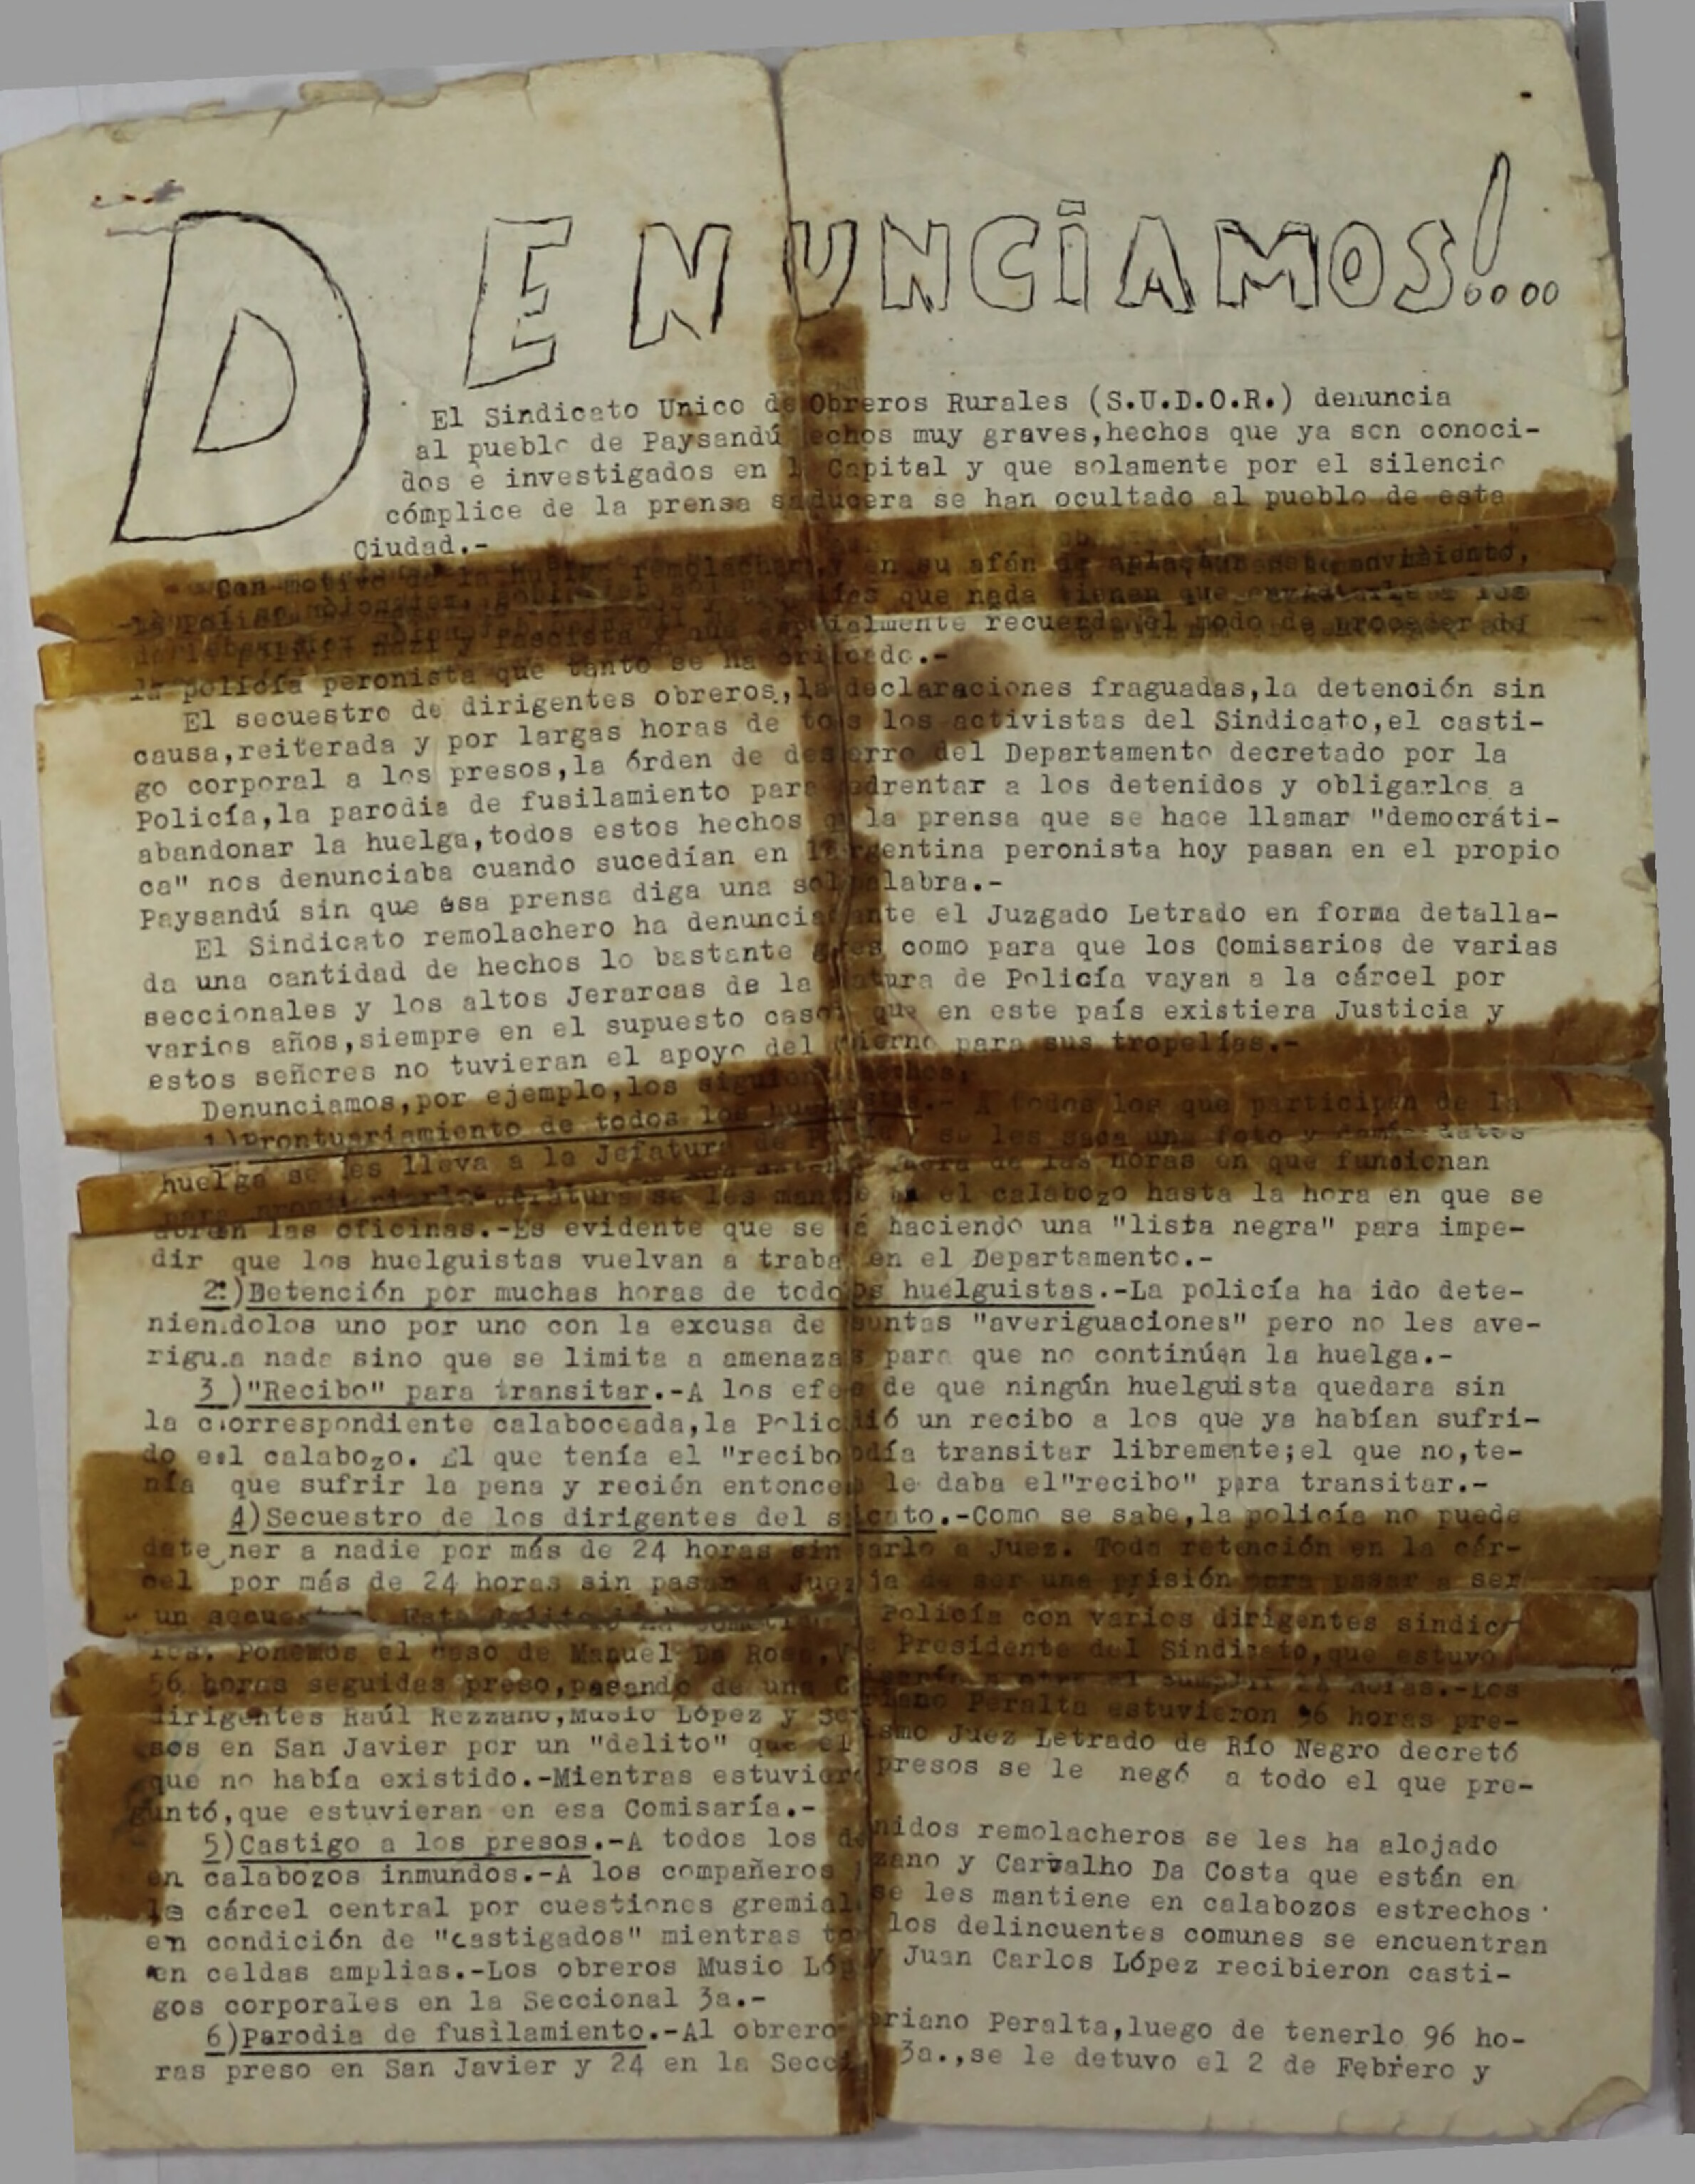 DENUNCIAMOS!...
El Sindicato Unico de Obreros Rurales (S.U.D.O.R.) denuncia
al pueblo de Paysandú echos muy graves,hechos que ya son conoci-
dos e investigados en l Capital y que solamente por el silencio
cómplice de la prensa saducera se han ocultado al pueblo de esta
Ciudad.-
Con motivo de la huelga remolachera,y en su afán de aplastar este movimiento,
la policía que nada tienen que
de la policía nazi y fascista y que especialmente recuerda el modo de proceder de
la policía peronista que tanto se ha criticado.-
El secuestro de dirigentes obreros,la declaraciones fraguadas,la detención sin
causa,reiterada y por largas horas de tos los activistas del Sindicato,el casti-
go corporal a los presos,la órden de des erro del Departamento decretado por la
Policía,la parodia de fusilamiento para drentar a los detenidos y obligarlos a
abandonar la huelga,todos estos hechos q la prensa que se hace llamar "democráti-
ca" nos denunciaba cuando sucedían en l rgentina peronista hoy pasan en el propio
Paysandú sin que esa prensa diga una sol palabra.-
El Sindicato remolachero ha denuncia ante el Juzgado Letrado en forma detalla-
da una cantidad de hechos lo bastante g es como para que los Comisarios de varias
seccionales y los altos Jerarcas de la atura de Policía vayan a la cárcel por
varios años,siempre en el supuesto caso que en este país existiera Justicia y
estos señores no tuvieran el apoyo del ierno para sus tropelías.-
Denunciamos,por ejemplo,los siguient hechos:
1)Prontuariamiento de todos los huelguistas.- A todos los que participan de la
huelga se les lleva a la Jefatura de P y se les saca una foto y demás datos
para fuera de las horas en que funcionan
Jefatura se les mantie en el calabozo hasta la hora en que se
abren las oficinas.-Es evidente que se tá haciendo una "lista negra" para impe-
dir que los huelguistas vuelvan a traba en el Departamento.-
2:)Detención por muchas horas de todo os huelguistas.-La policía ha ido dete-
niendolos uno por uno con la excusa de suntas "averiguaciones" pero no les ave-
rigu.a nada sino que se limita a amenazas para que no continúen la huelga.-
3 )"Recibo" para transitar.-A los efe de que ningún huelguista quedara sin
la c.orrespondiente calaboceada,la Polic dió un recibo a los que ya habían sufri-
do e.l calabozo. El que tenía el "recibo odía transitar libremente;el que no,te-
nía que sufrir la pena y reción entonces le daba el"recibo" para transitar.-
4)Secuestro de los dirigentes del s cato.-Como se sabe,la policía no puede
dete ner a nadie por más de 24 horas sin sarlo a Juez. Toda retención en la cár-
cel por más de 24 horas sin pasar a Juez ja de ser una prisión para pasar a ser
un secuestro. Este delito lo ha cometido Policía con varios dirigentes sindica-
les. Ponemos el caso de Manuel Da Rosa,V e Presidente del Sindicato,que estuvo
56 horas seguidas preso,pasando de una C isaría a otra al cumplir 24 horas.-Los
dirigentes Raúl Rezzano,Musio López y Se riano Peralta estuvieron 96 horas pre-
sos en San Javier por un "delito" que el ismo Juez Letrado de Río Negro decretó
que no había existido.-Mientras estuvier presos se le negó a todo el que pre-
guntó,que estuvieran en esa Comisaría.-
5)Castigo a los presos.-A todos los de nidos remolacheros se les ha alojado
en calabozos inmundos.-A los compañeros zano y Carvalho Da Costa que están en
la cárcel central por cuestiones gremial se les mantiene en calabozos estrechos
en condición de "castigados" mientras to los delincuentes comunes se encuentran
en celdas amplias.-Los obreros Musio Lóp y Juan Carlos López recibieron casti-
gos corporales en la Seccional 3a.-
6)Parodia de fusilamiento.-Al obrero eriano Peralta,luego de tenerlo 96 ho-
ras preso en San Javier y 24 en la Secci 3a.,se le detuvo el 2 de Febrero y